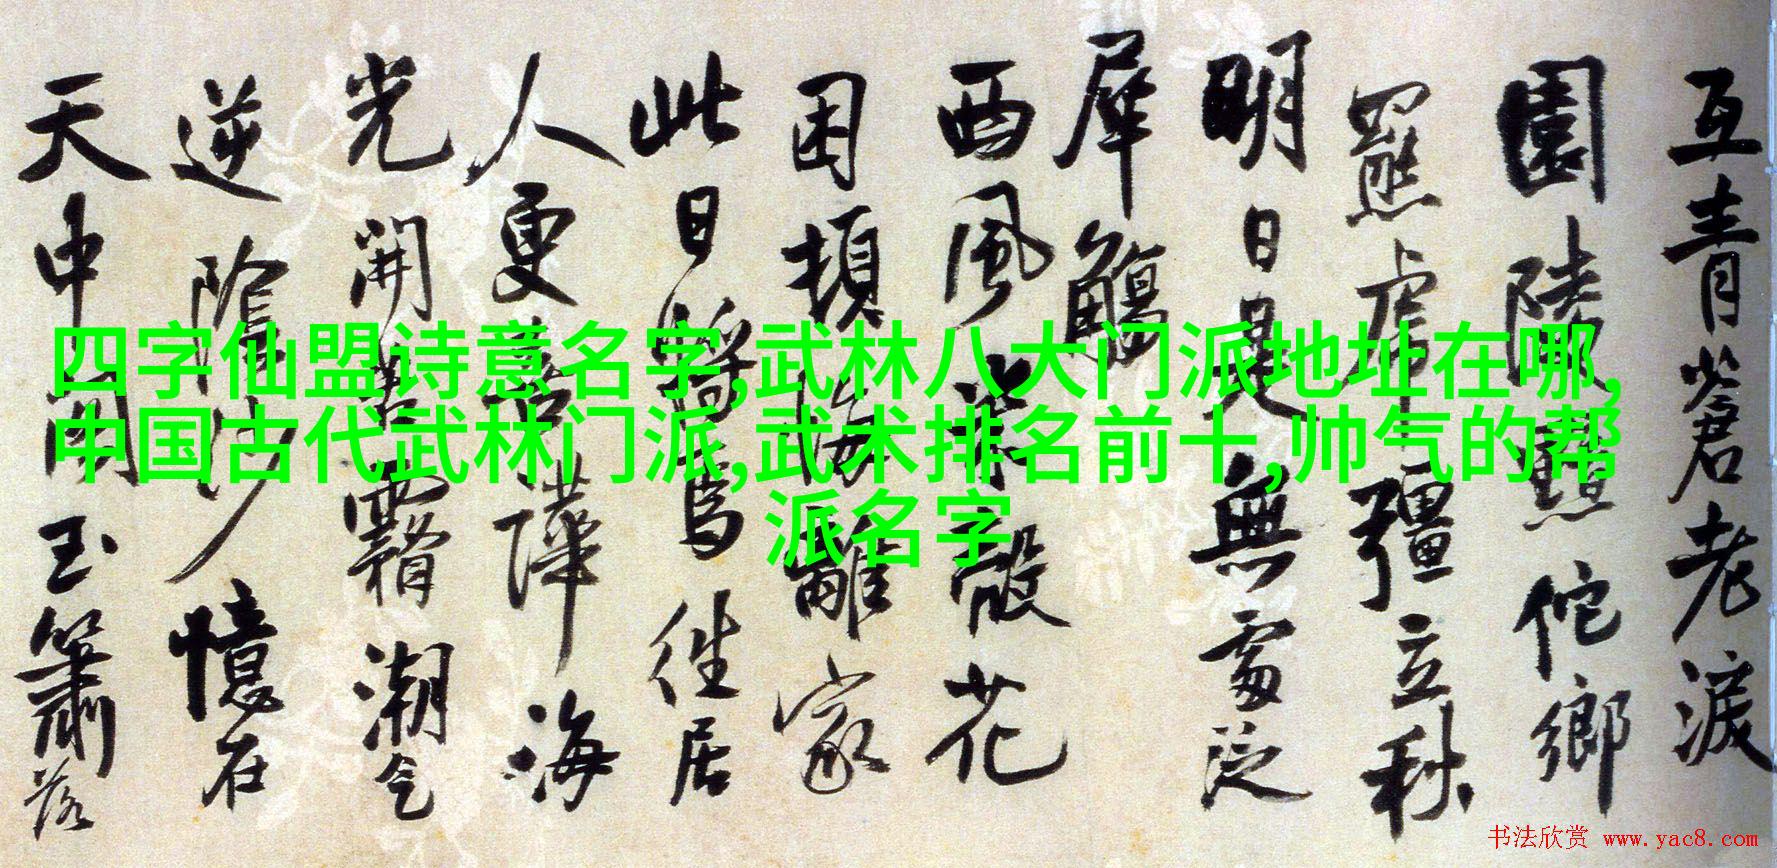 四字仙盟诗意名字,武林八大门派地址在哪,
中国古代武林门派,武术排名前十,帅气的帮
派名字
互青蒼老淚
園陵佗鄉
羆虎彊立秋
明日是無處泛
犀觴
西風花
困頓離家
此日將往居
人更海
光開霜潮气
逆陰沙憶在
天中玉簫落
书法欣赏 www.yac8.com